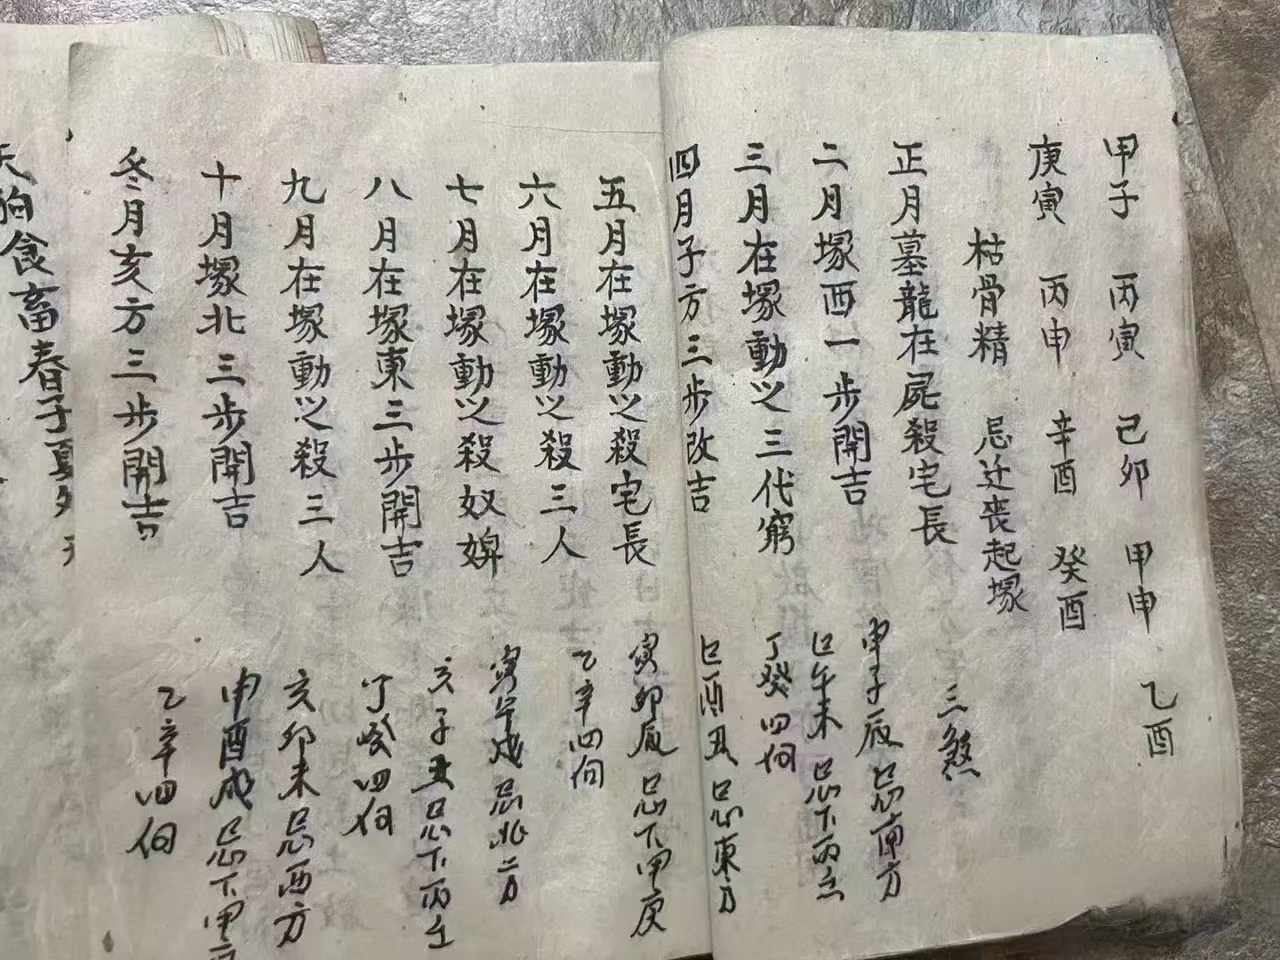 甲子 丙寅 己卯 甲申 乙酉
庚寅 丙申 辛酉 癸酉
枯骨精 忌迁丧起塚
三煞
正月墓龍在屍殺宅長
申子辰忌南方
二月塚西一步開吉
巳午未忌下丙壬
三月在塚動之三代窮
丁癸四向
四月子方三步改吉
巳酉丑忌東方
五月在塚動之殺宅長
寅卯辰忌下甲庚
六月在塚動之殺三人
乙辛四向
七月在塚動之殺奴婢
寅午戌忌北方
八月在塚東三步開吉
亥子丑忌下丙壬
九月在塚動之殺三人
丁癸四向
十月塚北三步開吉
亥卯未忌西方
冬月亥方三步開吉
申酉戌忌下甲
乙辛四向
天狗食畜春子夏